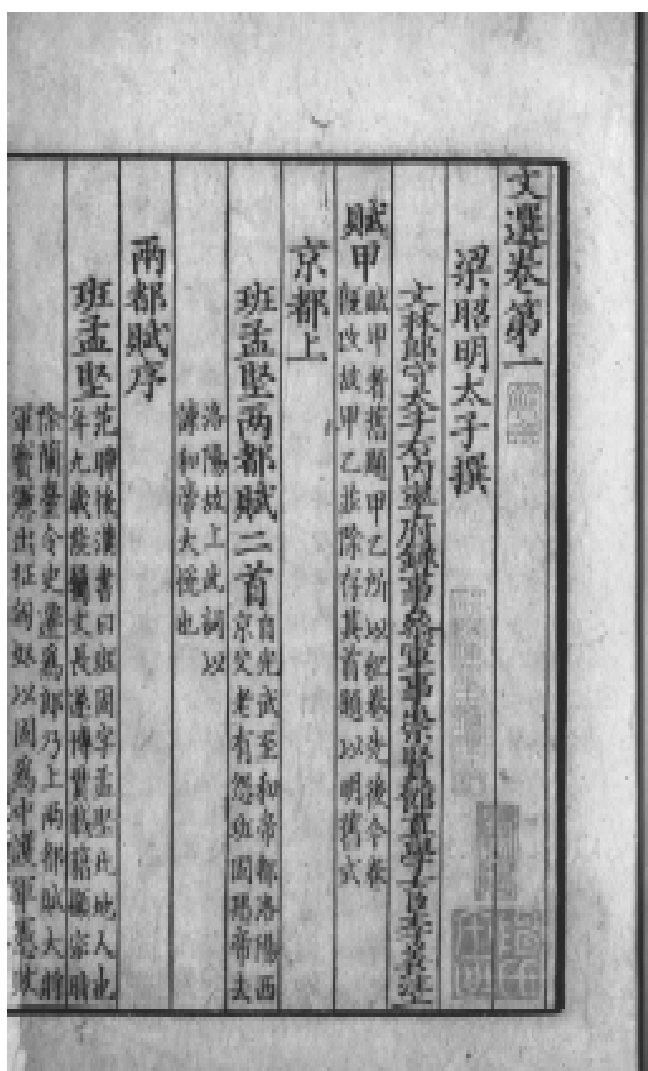 文選卷第一
梁昭明太子撰
文林郎守太子右內率府録事參軍事崇賢館直學士臣李善注
賦甲 賦甲者舊題甲乙所以紀卷先後今卷
既改故甲乙並除存其首題以明舊式
京都上
班孟堅兩都賦二首 自光武至和帝都洛陽西
京父老有怨班固恐帝去
洛陽故上此詞以
諫和帝大悅也
兩都賦序
班孟堅 范曄後漢書曰班固字孟堅北地人也
年九歲能屬文長遂博貫載籍顯宗時
除蘭臺令史遷爲郎乃上兩都賦大將
軍竇憲出征匈奴以固爲中護軍憲敗